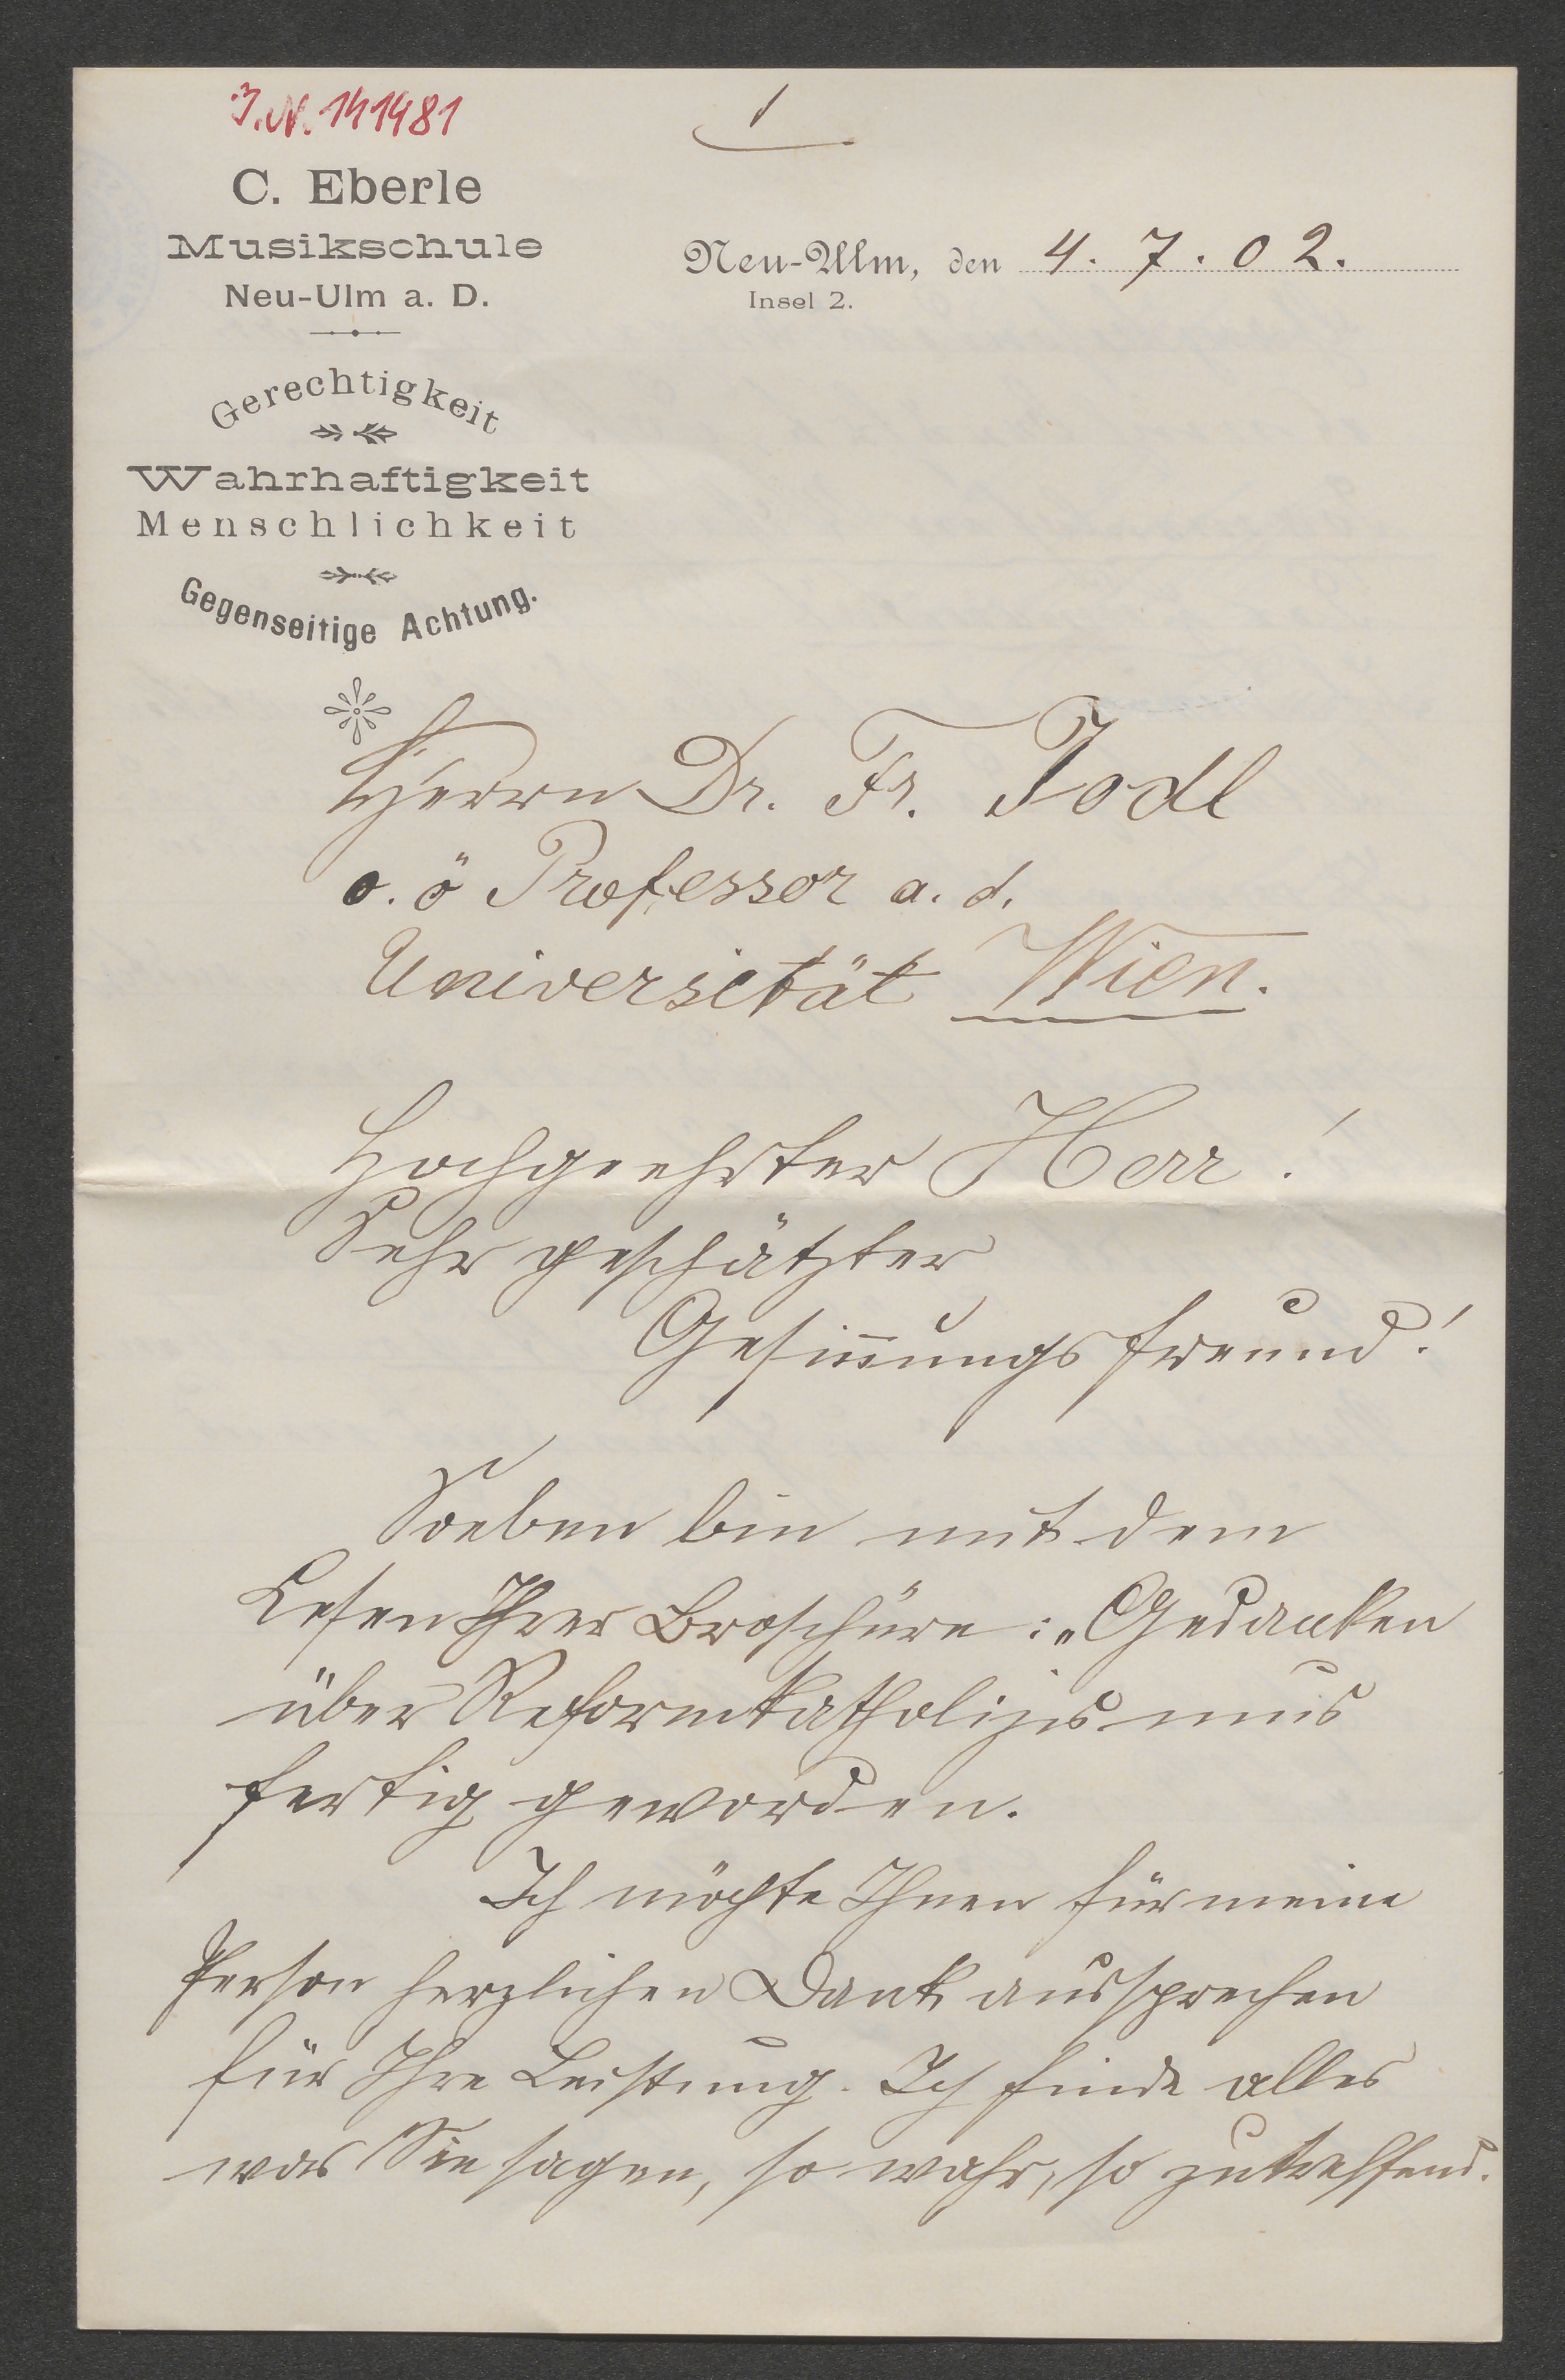 J.N. 141981
1
C. Eberle
Musikschule
Neu-Ulm a. D.
Neu-Ulm, den 4. 7. 02.
Insel 2.
Gerechtigkeit
Wahrhaftigkeit
Menschlichkeit
Gegenseitige Achtung.
Herrn Dr. Fr. Jodl
o. ö Professor a. d.
Universität Wien.
Hochgeehrter Herr!
Sehr geschätzter
Gesinnungsfreund!
Soeben bin mit dem
Lesen Ihrer Broschüre: „Gedanken
über Reformkatholizismus
fertig geworden.
Ich möchte Ihnen für meine
Person herzlichen Dank aussprechen
für Ihre Leistung. Ich finde alles
was Sie sagen, so wahr, so zutreffend.